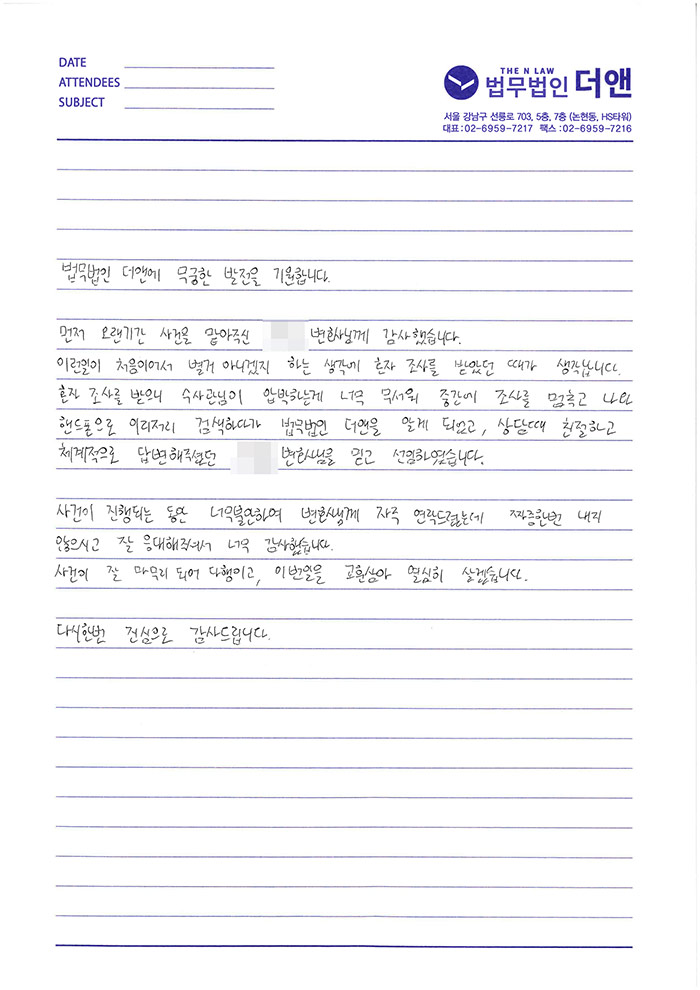 DATE
ATTENDEES
SUBJECT
THE N LAW
법무법인 더앤
서울 강남구 선릉로 703, 5층, 7층 (논현동, HS타워)
대표:02-6959-7217 팩스:02-6959-7216
법무법인 더앤에 무궁한 발전을 기원합니다.
먼저 오랜기간 사건을 맡아주신 변호사님께 감사했습니다.
이런일이 처음이어서 별거 아니겠지 하는 생각에 혼자 조사를 받았던 때가 생각납니다.
혼자 조사를 받으니 수사관님이 압박하는게 너무 무서워 중간에 조사를 멈추고 나와
핸드폰으로 이리저리 검색하다가 법무법인 더앤을 알게 되었고, 상담때 친절하고
체계적으로 답변해주셨던 변호사님을 믿고 선임하였습니다.
사건이 진행되는 동안 너무불안하여 변호사님께 자주 연락드렸는데 짜증한번 내지
않으시고 잘 응대해주셔서 너무 감사했습니다.
사건이 잘 마무리 되어 다행이고, 이번일을 교훈삼아 열심히 살겠습니다.
다시한번 진심으로 감사드립니다.